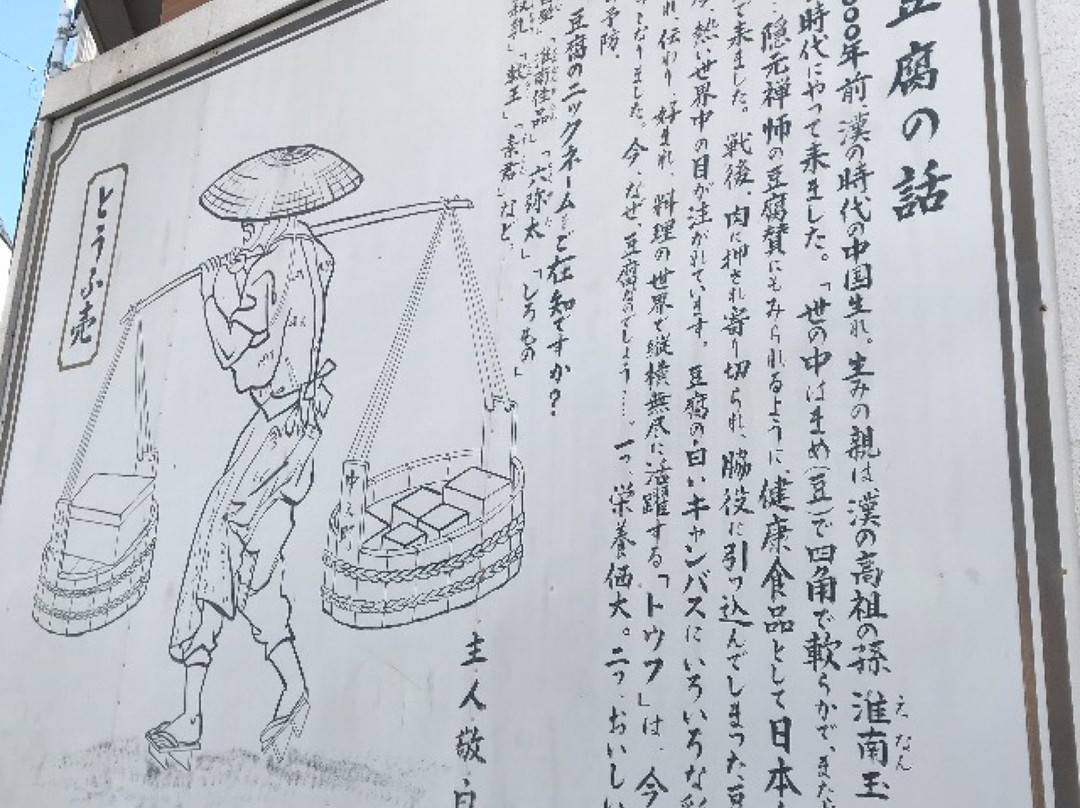 豆腐の話
〇〇年前、漢の時代の中国生れ。生みの親は漢の高祖の孫 淮南王
えなん
時代にやって来ました。「世の中はまめ(豆)で四角で軟らかで、また
隠元禅師の豆腐賛にもみられるように、健康食品として日本
で来ました。戦後、肉に押され寄り切られ、脇役に引っ込んでしまった豆
熱い世界中の目が注がれています。豆腐の白いキャンバスにいろいろな彩
れ、伝わり、好まれ、料理の世界で縦横無尽に活躍する「トウフ」は、今
となりました。今、なぜ、豆腐なのでしょう……。一つ、栄養価大。二つ、おいしい
予防。
豆腐のニックネーム…ご在知ですか?
「淮南佳品」「六弥太」「しろもの」
「軟玉」「素君」など。
とうふ売
主人敬白